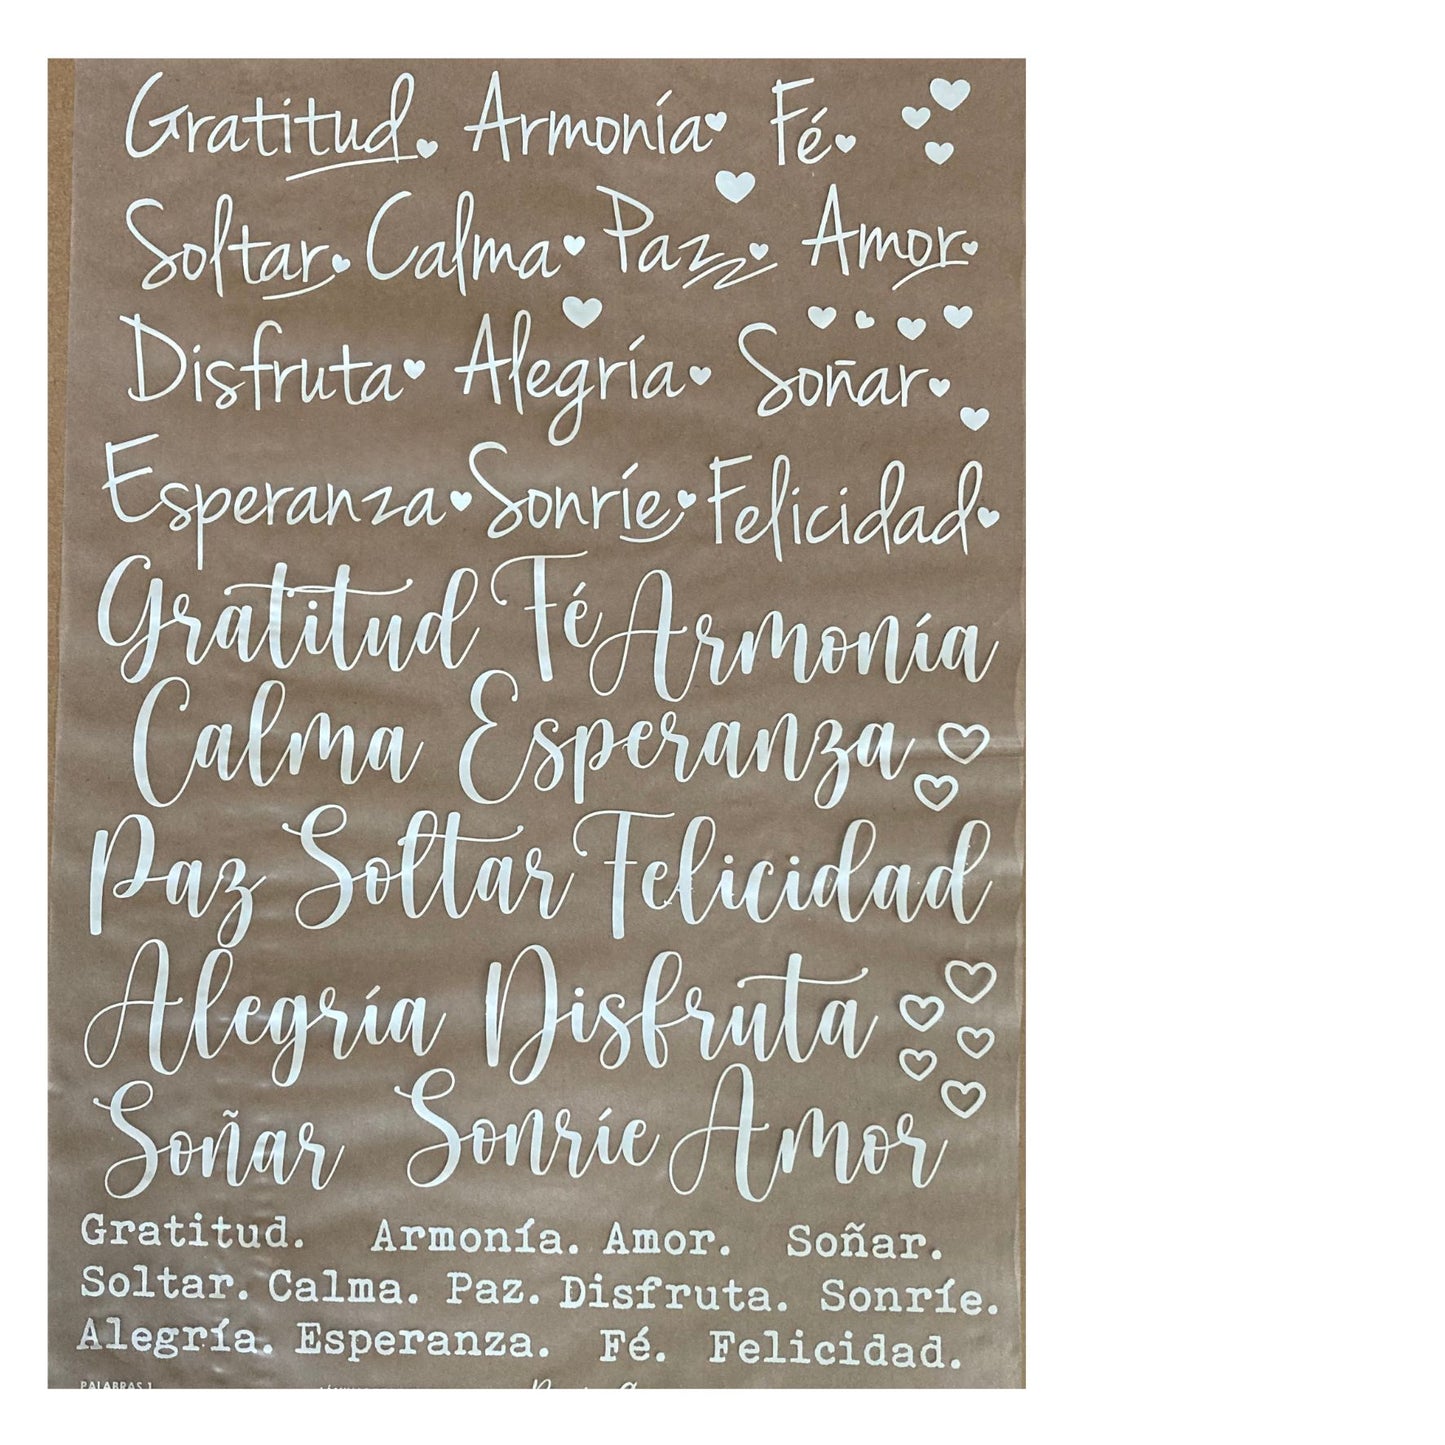 Gratitud. Armonía Fé
Soltar. Calma Paz Amor
Disfruta Alegría Soñar
Esperanza Sonríe Felicidad
Gratitud Fé Armonía
Calma Esperanza
Paz Soltar Felicidad
Alegría Disfruta
Soñar Sonríe Amor
Gratitud. Armonía. Amor. Soñar.
Soltar. Calma. Paz. Disfruta. Sonríe.
Alegría. Esperanza. Fé. Felicidad.
PALABRAS 1